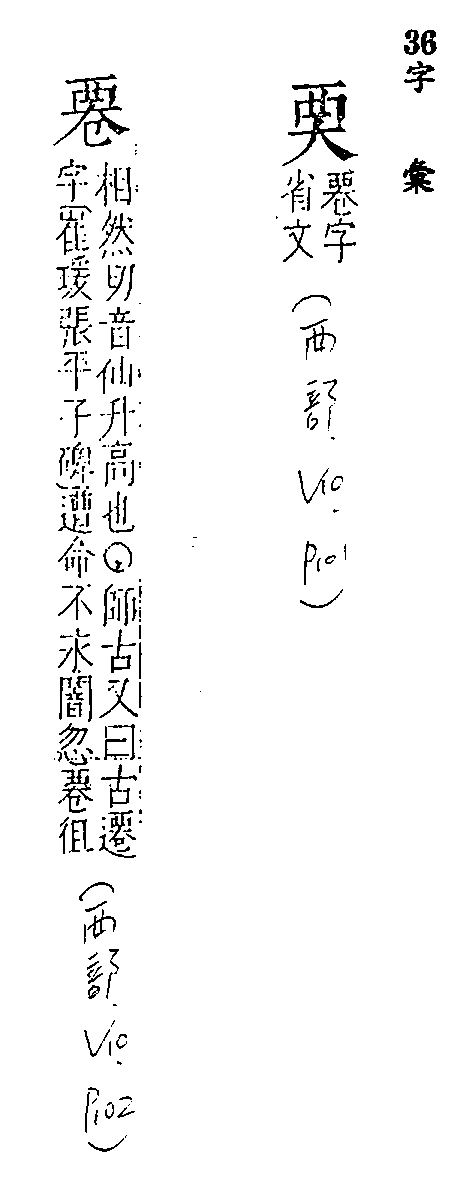 36
字彙
䙴字
省文
(西部. V10. P101)
䙴
相然切音仙升高也〇師古又曰古遷
字崔瑗張平子碑遭命不永闇忽䙴徂
(西部. V10. P102)